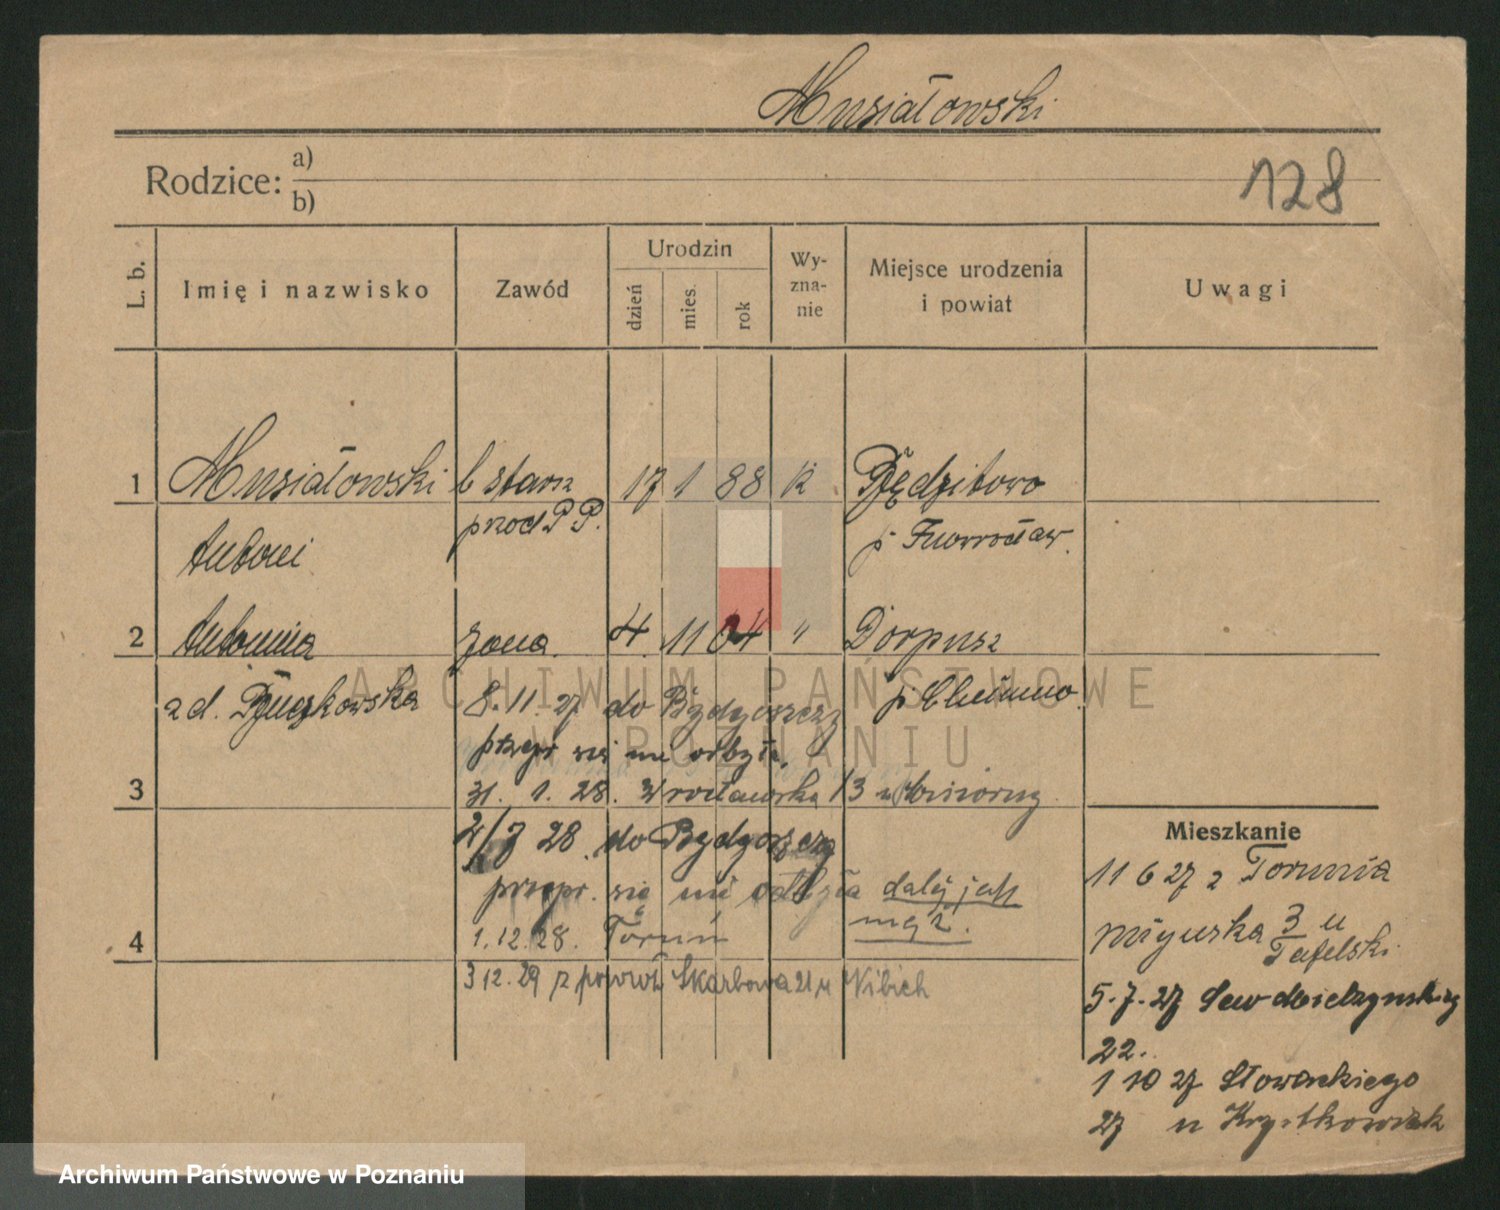 Musiałowski
128
Rodzice: a)
b)
L. b.
Imię i nazwisko
Zawód
Urodzin
dzień
mies.
rok
Wy-
zna-
nie
Miejsce urodzenia
i powiat
Uwagi
1 Musiałowski b starsz 17 1 88 k Będzitowo
przod P P. p Inowrocław.
Antoni
2 Antonina żona. 4. 11 04 " Dorpusz
z d. 8.11.27 do Bydgoszczy p Chełmno.
przepr się nie odbyła.
3 31. 1. 28. Wrocławska 13 u
4/7 28. do Bydgoszczy
przepr. się nie odbyła dalej jak
mąż.
4 1.12.28. Toruń
3 12.29 z powrot Skarbowa 21 u Nibich
Mieszkanie
11 6 27 z Torunia
3 u
Tafelski
5.7.27
22.
1 10 27 Słowackiego
27 u Krystkowiak
ARCHIWUM PAŃSTWOWE
W POZNANIU
Archiwum Państwowe w Poznaniu